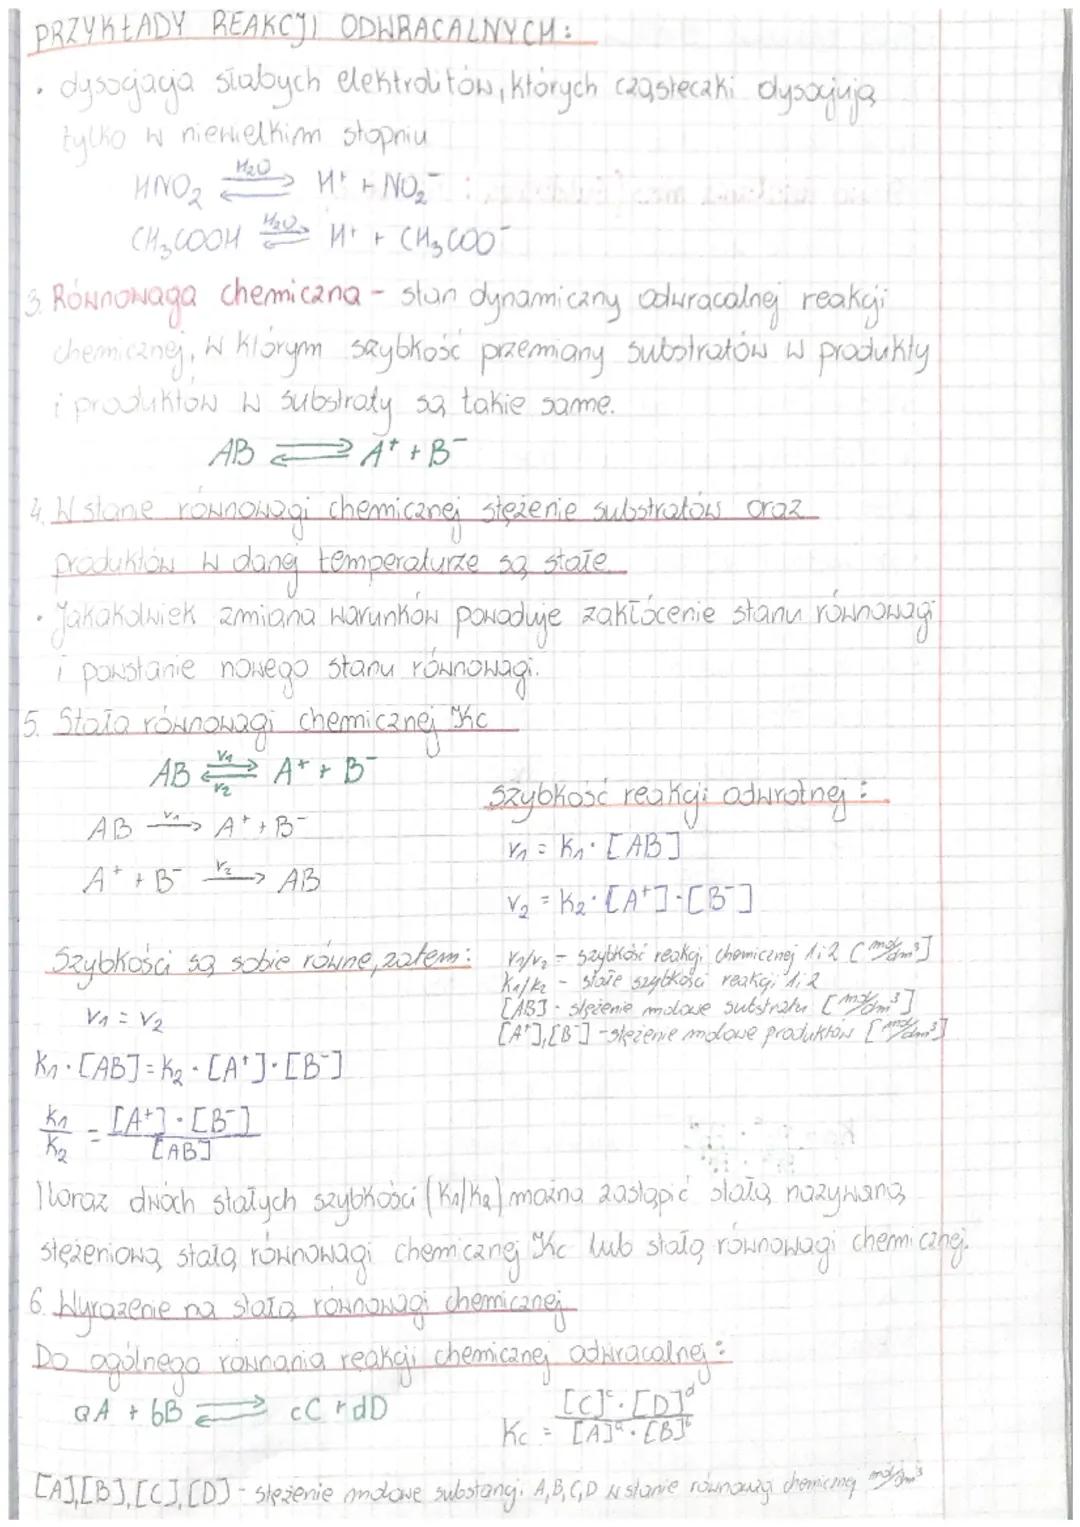 PRZYKŁADY REAKCJI ODWRACALNYCH:
• dysocjacja słabych elektrolitów, których cząsteczki dysocjują
tylko w niewielkim stopniu
HNO₂ ⇌ (H₂O) H⁺ + NO₂⁻
CH₃COOH ⇌ (H₂O) H⁺ + CH₃COO⁻
3. Równowaga chemiczna - stan dynamiczny odwracalnej reakcji
chemicznej, w którym szybkość przemiany substratów w produkty
i produktów w substraty są takie same.
AB ⇌ A⁺ + B⁻
4. W stanie równowagi chemicznej stężenie substratów oraz
produktów w danej temperaturze są stałe.
• Jakakolwiek zmiana warunków powoduje zakłócenie stanu równowagi
i powstanie nowego stanu równowagi.
5. Stała równowagi chemicznej Kc
AB ⇌ (v₁, v₂) A⁺ + B⁻
AB →(v₁) A⁺ + B⁻
A⁺ + B⁻ →(v₂) AB
Szybkość reakcji odwrotnej:
v₁ = k₁ · [AB]
v₂ = k₂ · [A⁺] · [B⁻]
Szybkości są sobie równe, zatem:
v₁ = v₂
k₁ · [AB] = k₂ · [A⁺] · [B⁻]
k₁/k₂ = [A⁺] · [B⁻] / [AB]
v₁/v₂ - szybkość reakcji chemicznej 1 i 2 [mol/dm³]
k₁/k₂ - stałe szybkości reakcji 1 i 2
[AB] - stężenie molowe substratu [mol/dm³]
[A⁺],[B⁻] - stężenie molowe produktów [mol/dm³]
Iloraz dwóch stałych szybkości (k₁/k₂) można zastąpić stałą nazywaną
stężeniową stałą równowagi chemicznej Kc lub stałą równowagi chemicznej.
6. Wyrażenie na stałą równowagi chemicznej
Do ogólnego równania reakcji chemicznej odwracalnej:
aA + bB ⇌ cC + dD
Kc = [C]ᶜ · [D]ᵈ / [A]ᵃ · [B]ᵇ
[A],[B],[C],[D] - stężenie molowe substancji A,B,C,D w stanie równowagi chemicznej mol/dm³